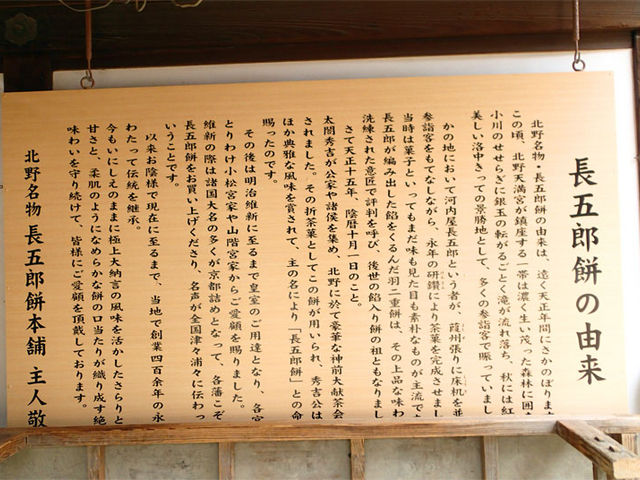 長五郎餅の由来
北野名物・長五郎餅の由来は、遠く天正年間にさかのぼりま
この頃、北野天満宮が鎮座する一帯は濃く生い茂った森林に囲
小川のせせらぎに銀玉の転がるごとく滝が流れ落ち、秋には紅
美しい洛中きっての景勝地として、多くの参詣客で賑っていまし
かの地において河内屋長五郎という者が、葭州張りに床机を並
参詣客をもてなしながら、永年の研鑽により茶菓を完成させまし
当時は菓子といってもまだ味も見た目も素朴なものが主流で
長五郎が編み出した餡をくるんだ羽二重餅は、その上品な味わ
洗練された意匠で評判を呼び、後世の餡入り餅の祖ともなりまし
さて天正十五年、陰暦十月一日のこと。
太閤秀吉が公家や諸侯を集め、北野に於て豪華な神前大献茶会
されました。その折茶菓としてこの餅が用いられ、秀吉公は
ほか典雅な風味を賞されて、主の名により「長五郎餅」との命
賜ったのです。
その後は明治維新に至るまで皇室のご用達となり、各宮
とりわけ小松宮家や山階宮家からご愛顧を賜りました。
維新の際は諸国大名の多くが京都詰めとなって、各藩こぞ
長五郎餅をお買い上げくださり、名声が全国津々浦々に伝わっ
いうことです。
以来お陰様で現在に至るまで、当地で創業四百余年の永
わたって伝統を継承。
今もいにしえのままに極上大納言の風味を活かしたさらりと
甘さと、柔肌のようになめらかな餅の口当たりが織り成す絶
味わいを守り続けて、皆様にご愛顧を頂戴しております。
北野名物 長五郎餅本舗 主人敬